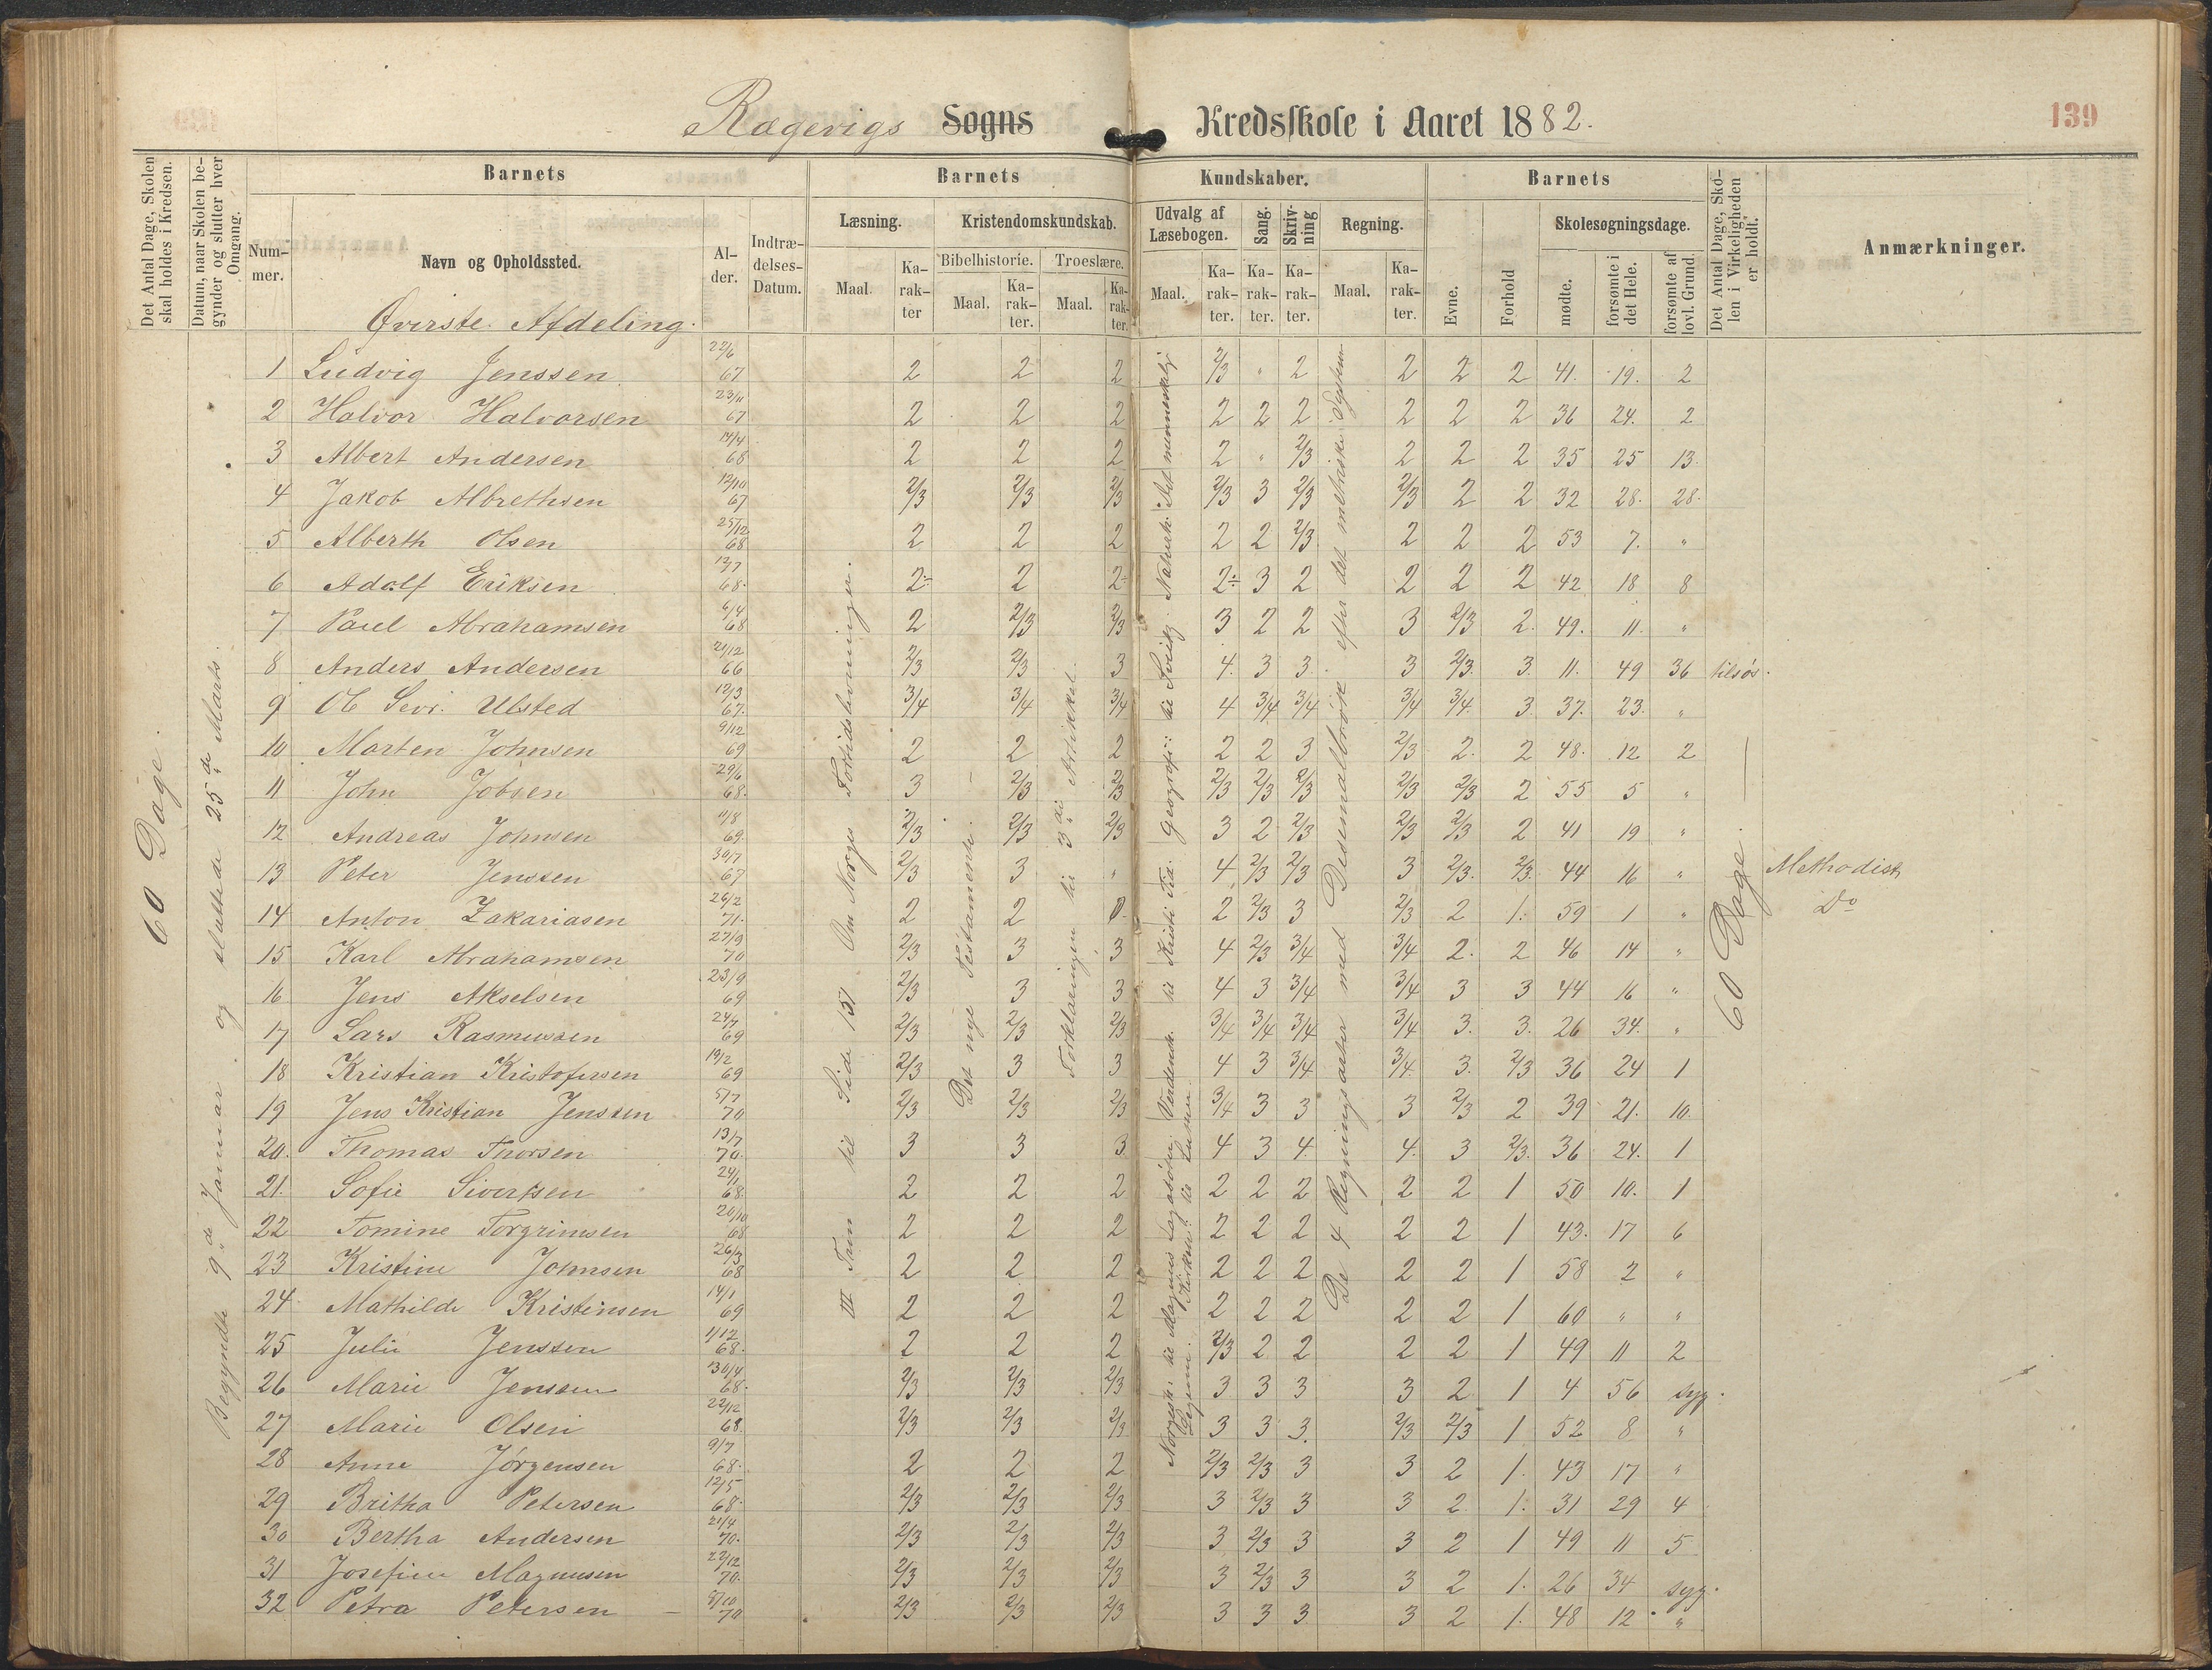 Ragevigs Sogns Kredsskole i Aaret 1882.
139
Det Antal Dage, Skolen skal holdes i Kredsen.
Datum, naar Skolen begynder og slutter hver Omgang.
Barnets
Barnets
Kundskaber.
Barnets
Det Antal Dage, Skolen i Virkeligheden er holdt.
Anmærkninger.
Nummer.
Navn og Opholdssted.
Alder.
Indtrædelses-Datum.
Læsning.
Kristendomskundskab.
Udvalg af Læsebogen.
Sang.
Skrivning
Regning.
Evne.
Forhold
Skolesøgningsdage.
Maal. Karakter
Bibelhistorie.
Troeslære.
Maal. Karakter.
Maal. Karakter.
Maal. Karakter.
Karakter.
Karakter.
Maal. Karakter.
mødte.
forsømte i det Hele.
forsømte af lovl. Grund.
Øverste Afdeling.
60 Dage.
Begyndte 9de Januar og sluttede 25de Marts.
III Trin til Side 151 Om Norges Fortidslevninger.
Det nye Testamente.
Forklaringen til 3die Artikkel.
De 4 Regningsarter med Desemalbrøk efter det metriske System
60 Dage
1 Ludvig Jenssen 22/6 67 2 2 2 2/3 " 2 2 2 2 41. 19. 2
2 Halvor Halvorsen 23/11 67 2 2 2 2 2 2 2 2 2 36 24. 2
3 Albert Andersen 14/4 68 2 2 2 2 " 2/3 2 2 2 35 25 13.
4 Jakob Albrethsen 12/10 67 2/3 2/3 2/3 2/3 3 2/3 2/3 2 2 32 28. 28.
5 Alberth Olsen 25/12 68 2 2 2 2 2 2/3 2 2 2 53 7. "
6 Adolf Eriksen 12/7 68. 2÷ 2 2÷ 2÷ 3 2 2 2 2 42 18 8
7 Paul Abrahamsen 6/4 68 2 2/3 2/3 3 2 2 3 2/3 2. 49. 11. "
8 Anders Andersen 21/12 66 2/3 2/3 3 4. 3 3. 3 2/3. 3. 11. 49 36 tilsøs.
9 Ol Sevr. Ulsted 12/3 67. 3/4 3/4 3/4 4 3/4 3/4 3/4 3/4. 3. 37. 23. "
10 Morten Johnsen 9/12 69 2 2 2 2 2 3 2/3 2. 2 48. 12 2
11 John Jobsen 29/6 68. 3 2/3 2/3 2/3 2/3 2/3 2/3 2/3 2 55 5 "
12 Andreas Johnsen 11/8 69. 2/3 2/3 2/3 3 2 2/3 2/3 2/3 2 41 19 "
13 Peter Jenssen 30/7 67 2/3 3 " 4 2/3 2/3 3 2/3. 2/3. 44 16 " Methodist
14 Anton Zakariasen 26/2 71. 2 2 0. 2 2/3 3 2/3 2 1. 59 1 " Do
15 Karl Abrahamsen 27/9 70 2/3 3 3 4 2/3 3/4 3/4 2. 2 46 14 "
16 Jens Akselsen 23/9 69 2/3 3 3 4 3 3/4 3/4 3 3 44 16 "
17 Lars Rasmussen 24/7 69 2/3 2/3 2/3 3/4 3/4 3/4 3/4 3. 3. 26 34. "
18 Kristian Kristofersen 19/2 69 2/3 3 3 4 3 3/4 3/4. 3. 2/3 36 24 1
19 Jens Kristian Jenssen 5/7 70 2/3 2/3 2/3 3/4 3 3 3 2/3 2 39 21. 10.
20. Thomas Thorsen 13/7 70. 3 3 3. 4 3 4. 4. 3 2/3. 36 24. 1
21. Sofie Sivertsen 24/1 68. 2 2 2 2 2 2 2 2 1 50 10. 1
22 Tomine Torgrimsen 20/10 68 2 2 2 2 2 2 2 2 1 43. 17 6
23 Kristine Johnsen 26/3 68 2 2 2 2 2 2 2 2 1 58 2 "
24 Mathilde Kristensen 14/1 69 2 2 2 2 2 2 2 2 1 60 " "
25 Julie Jenssen 4/12 68. 2 2 2 2/3 2 2 2 2 1 49 11 2
26 Marie Jensen 30/4 68. 2/3 2/3 2/3 3 3 3 3 2 1 4 56 syg.
27 Marie Olsen 22/12 68. 2/3 2/3 2/3 3 3 3. 2/3 2/3 1 52 8 "
28 Anne Jørgensen 9/7 68. 2 2 2 2/3 2/3 3 3 2 1. 43 17 "
29 Britha Petersen 12/5 68. 2/3 2/3 2/3 3 2/3 3 3 2 1. 31 29 4
30 Bertha Andersen 21/4 70. 2/3 2/3 2/3 3 2/3 3 3 2 1 49 11 5
31 Josefine Magnusen 22/12 70. 2/3 2/3 2/3 3 2/3 3 3 2 1. 26 34 syg.
32 Petra Petersen 8/10 70 2/3 2/3 2/3 3 3 3 3 2 1. 48 12 "